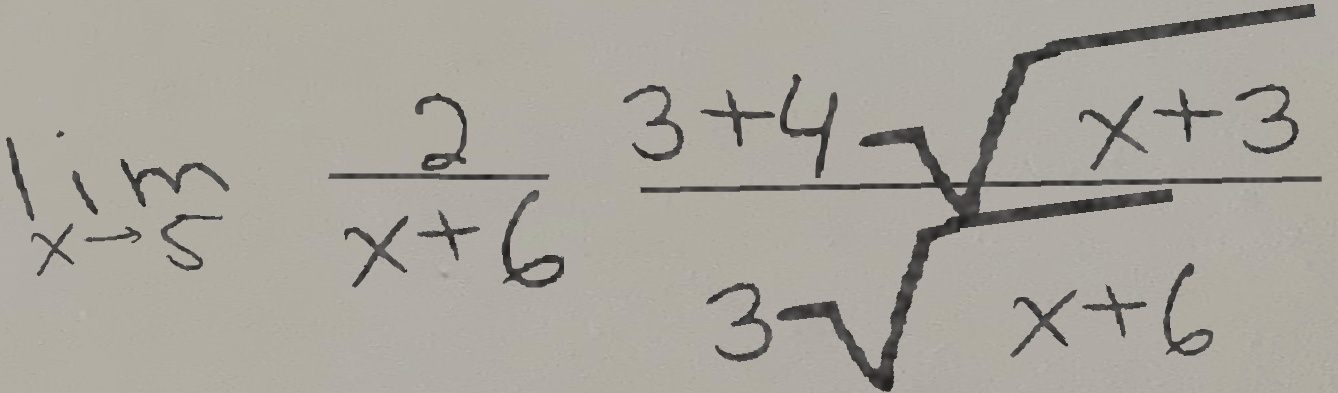 \lim_{x \to 5} \frac{2}{x+6} \frac{3+4\sqrt{x+3}}{3\sqrt{x+6}}